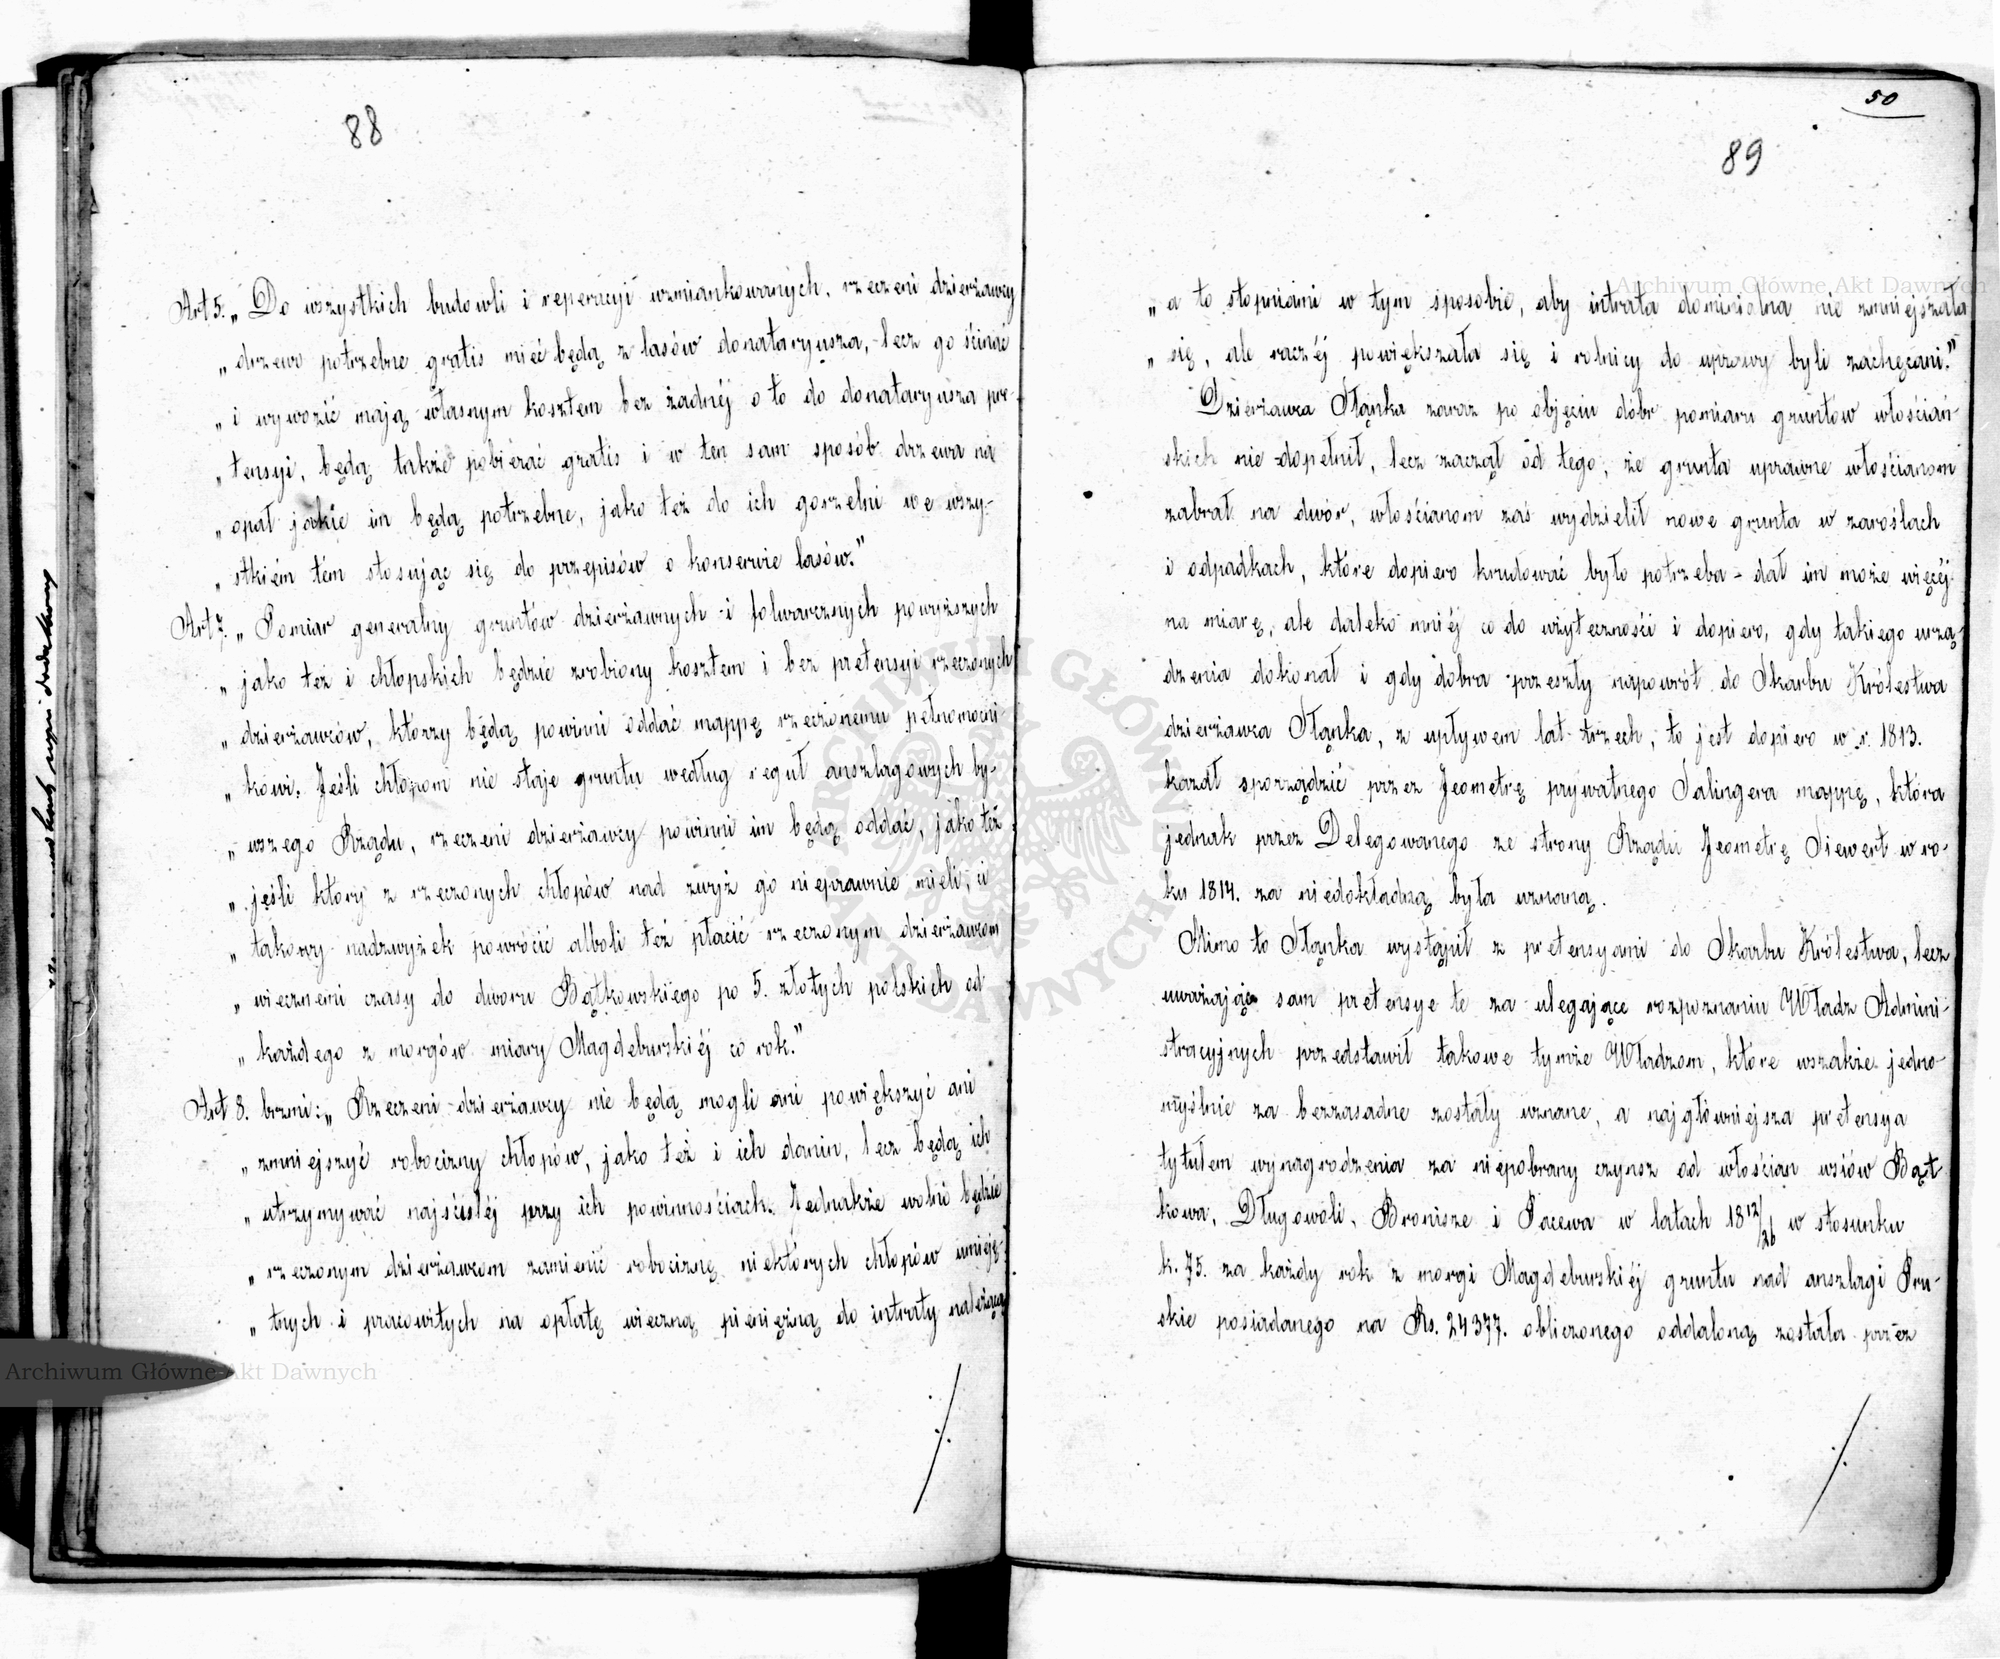 88
Art 5. „ Do wszystkich budowli i reperacyi wzmiankowanych, rzeczeni dzierżawcy
„ drzewo potrzebne gratis mieć będą z lasów donataryusza, lecz go ścinać
„ i wywozić mają własnym kosztem bez żadnéj o to do donataryusza pre-
„ tensyi, będą także pobierać gratis i w ten sam sposób drzewa na
„ opał jakie im będą potrzebne, jako też do ich gorzelni we wszy-
„ stkiém tém stosując się do przepisów o konserwie lasów."
Art 7. „ Pomiar generalny gruntów dzierżawnych i folwarcznych powyższych
„ jako też i chłopskich będzie zrobiony kosztem i bez pretensyi rzeczonych
„ dzierżawców, którzy będą powinni oddać mappę rzeczonemu pełnomocni-
„ kowi. Jeśli chłopom nie staje gruntu według reguł anszlagowych by-
„ wszego Rządu, rzeczeni dzierżawcy powinni im będą oddać, jako też
„ jeśli który z rzeczonych chłopów nad zwyż go nieprawnie mieli, ci
„ takowy nadzwyżek powrócić alboli też płacić rzeczonym dzierżawcom
„ wiecznemi czasy do dworu Bątkowskiego po 5. złotych polskich od
„ każdego z morgów miary Magdeburskiéj co rok."
Art 8. brzmi: „ Rzeczeni dzierżawcy nie będą mogli ani powiększyć ani
„ zmniejszyć robocizny chłopów, jako też i ich danin, lecz będą ich
„ utrzymywać najściśléj przy ich powinnościach. Jednakże wolno będzie
„ rzeczonym dzierżawcom zamienić robociznę niektórych chłopów umieję-
„ tnych i pracowitych na opłatę wieczną pieniężną do intraty należącą
50
89
„ a to stopniami w tym sposobie, aby intrata dominialna nie zmniejszała
„ się, ale raczéj powiększała się i rolnicy do uprawy byli zachęcani."
Dzierżawca Stąnka zaraz po objęciu dóbr pomiaru gruntów włościań-
skich nie dopełnił, lecz zaczął od tego, że grunta uprawne włościanom
zabrał na dwór, włościanom zaś wydzielił nowe grunta w zaroślach
i odpadkach, które dopiero krudować było potrzeba - dał im może więcéj
na miarę, ale daleko mniéj co do użyteczności i dopiero, gdy takiego urzą-
dzenia dokonał i gdy dobra przeszły napowrót do Skarbu Królestwa
dzierżawca Stąnka, z upływem lat trzech, to jest dopiero w r. 1813.
kazał sporządzić przez Jeometrę prywatnego Salingera mappę, która
jednak przez Delegowanego ze strony Rządu Jeometrę Siewert w ro-
ku 1814. za niedokładną była uznaną.
Mimo to Stąnka wystąpił z pretensyami do Skarbu Królestwa, lecz
uważając sam pretensye te za ulegające rozpoznaniu Władz Admini-
stracyjnych przedstawił takowe tymże Władzom, które wszakże jedno-
myślnie za bezzasadne zostały uznane, a najgłówniejsza pretensya
tytułem wynagrodzenia za niepobrany czynsz od włościan wsiów Bąt-
kowa, Długowoli, Bronisze i Pacewa w latach 18 12/26 w stosunku
k. 75. za każdy rok z morgi Magdeburskiéj gruntu nad anszlagi Pru-
skie posiadanego na Rs. 24377. obliczonego oddaloną została przez
Archiwum Główne Akt Dawnych
Archiwum Główne Akt Dawnych
ARCHIWUM GŁÓWNE AKT DAWNYCH